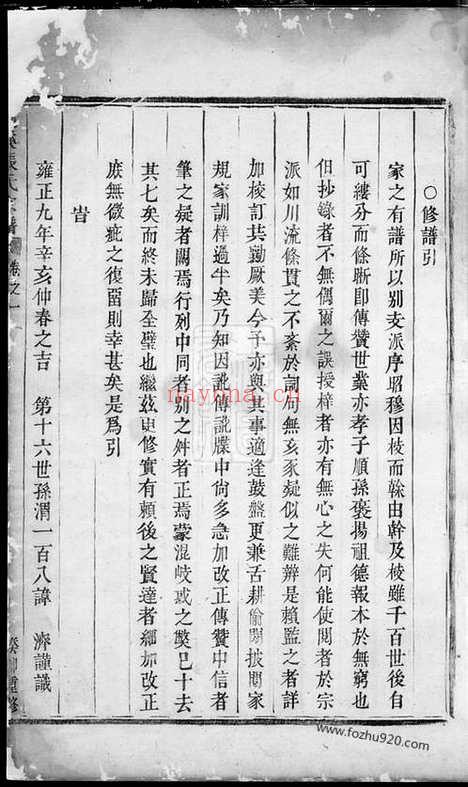 ○修譜引
家之有譜所以別支派序昭穆因枝而榦由幹及枝雖千百世後自
可縷分而條晰卽傳贊世業亦孝子順孫褒揚祖德報本於無窮也
但抄錄者不無偶爾之誤授梓者亦有無心之失何能使閱者於宗
派如川流條貫之不紊於詞句無亥豕疑似之難辨是賴監之者詳
加校訂共勷厥美今予亦與其事適逢鼓盤更兼舌耕偷閒披閱家
規家訓梓過半矣乃知因訛傳訛牒中尙多急加改正傳贊中信者
筆之疑者闕焉行列中同者別之舛者正焉蒙混岐惑之獘已十去
其七矣而終未歸全璧也繼茲更修實有賴後之賢達者細加改正
庶無微疵之復留則幸甚矣是爲引
旹
雍正九年辛亥仲春之吉 第十六世孫渭一百八諱 濟謹識
張氏宗譜 卷之一
重修
nayona.cn
www.fozhu920.com